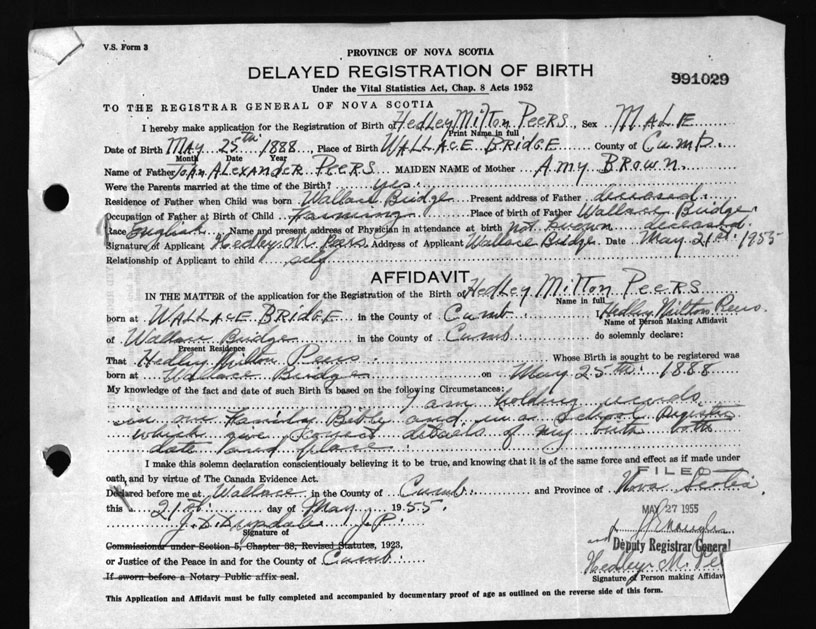 V.S. Form 3
PROVINCE OF NOVA SCOTIA
DELAYED REGISTRATION OF BIRTH
991029
Under the Vital Statistics Act, Chap. 8 Acts 1952
TO THE REGISTRAR GENERAL OF NOVA SCOTIA
I hereby make application for the Registration of Birth of Hedley Milton Peers, Sex MALE
Print Name in full
Date of Birth MAY 25th 1888 Place of Birth WALLACE BRIDGE County of Cumb.
Month Date Year
Name of Father John Alexander Peers MAIDEN NAME of Mother Amy Brown
Were the Parents married at the time of the Birth? yes
Residence of Father when Child was born Wallace Bridge Present address of Father deceased
Occupation of Father at Birth of Child farming Place of birth of Father Wallace Bridge
Race English Name and present address of Physician in attendance at birth not known deceased
Signature of Applicant Hedley M. Peers Address of Applicant Wallace Bridge Date May 21st 1955
Relationship of Applicant to child self
AFFIDAVIT
IN THE MATTER of the application for the Registration of the Birth of Hedley Milton Peers
Name in full
born at WALLACE BRIDGE in the County of Cumb. I, Hedley Milton Peers
Name of Person Making Affidavit
of Wallace Bridge in the County of Cumb. do solemnly declare:
Present Residence
That Hedley Milton Peers Whose Birth is sought to be registered was
born at Wallace Bridge on May 25th 1888
My knowledge of the fact and date of such Birth is based on the following Circumstances:
I am holding records
in our Family Bible and in a School Register
which give correct details of my birth both
date and place
I make this solemn declaration conscientiously believing it to be true, and knowing that it is of the same force and effect as if made under
oath, and by virtue of The Canada Evidence Act.
FILED
Declared before me at Wallace in the County of Cumb. and Province of Nova Scotia
this 21st day of May 1955.
MAY 27 1955
J.P.
Signature of
Commissioner under Section 5, Chapter 38, Revised Statutes, 1923,
Deputy Registrar General
or Justice of the Peace in and for the County of Cumb.
Hedley M. Pe
If sworn before a Notary Public affix seal.
Signature of Person making Affidavi
This Application and Affidavit must be fully completed and accompanied by documentary proof of age as outlined on the reverse side of this form.